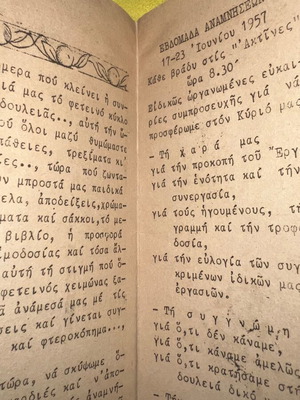 μερα πού κλείνει ή συν-
ας μέ τό φετεινό κύκλο
δουλειᾶς..., αυτή τήν ὥ-
ού ὅλοι μαζύ θυμώμαστε
πάθειες, τρεξίματα κι'
ίες.., τώρα πού ζωντα-
ν μπροστά μας παιδικά
ελα, ἀποδείξεις,χρώμα-
ματα καί σάκκοι,τό με-
βιβλίο, ἡ προσφορά
ιμοδοσίας καί τόσα ἄλ-
αυτή τή στιγμή πού ὁ
φετεινός χειμώνας ξα-
ᾶ ἀνάμεσά μας μέ τίς
σεις καί γίνεται συγ-
καί φτεροκόπημα...,
τώρα, νά σκύψωμε ὅ-
αρδιές καί ν'ἀπο-
ΕΒΔΟΜΑΔΑ ΑΝΑΜΝΗΣΕΩΝ
17-23 Ἰουνίου 1957
Κάθε βράδυ στίς "Ἀκτῖνες"
ὥρα 8.30'
Εἰδικῶς ὠργανωμένες εὐκαι-
ρίες συμπροσευχῆς γιά νά
προσφέρωμε στόν Κύριό μας
- Τή χαρά μας
γιά τήν προκοπή τοῦ "Ἔργ
γιά τήν ἑνότητα καί τήν
συνεργασία,
γιά τούς ἡγουμένους, τή
γραμμή καί τήν τροφο
δοσία,
γιά τήν εὐλογία τῶν συγ
κριμένων ἰδικῶν μας
ἐργασιῶν.
- Τή συγγνώμη
γιά ὅ,τι δέν κάναμε,
γιά ὅ,τι κάναμε ἀμελῶς
γιά ὅ,τι κρατήσαμε στή
δουλειά δικό μ